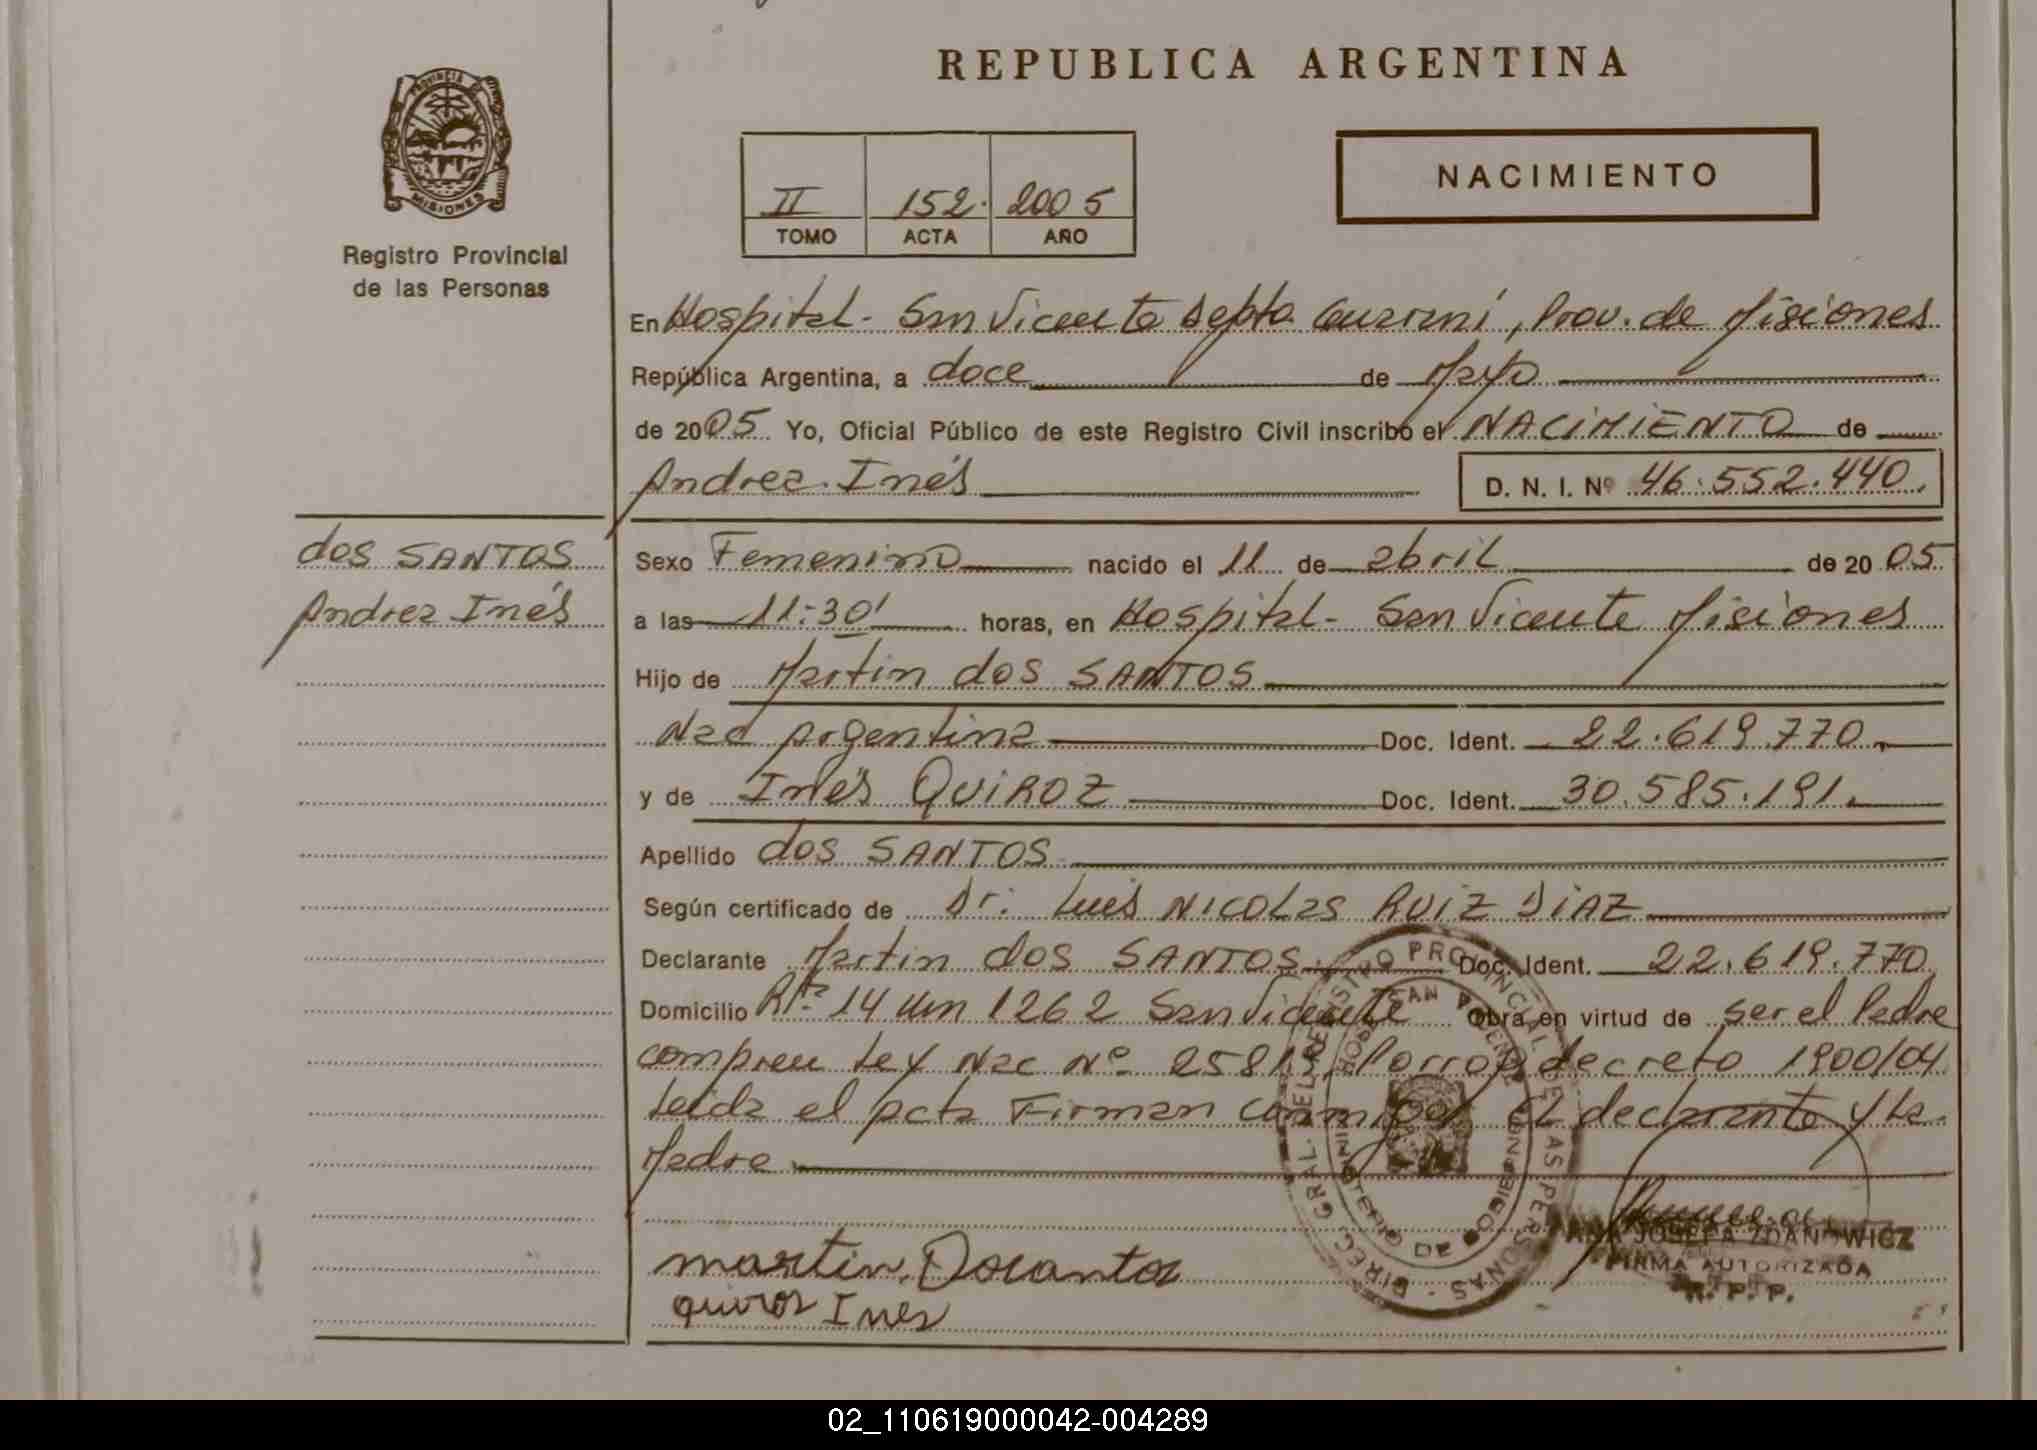 REPUBLICA ARGENTINA
PROVINCIA
MISIONES
Registro Provincial
de las Personas
II 152. 2005
TOMO ACTA AÑO
NACIMIENTO
En Hospital - San Vicente Depto Guaraní, Prov. de Misiones
República Argentina, a doce de Mayo
de 2005 Yo, Oficial Público de este Registro Civil inscribo el NACIMIENTO de
Andrea Inés D. N. I. Nº 46.552.440.
dos SANTOS
Andrea Inés
Sexo Femenino nacido el 11 de abril de 2005
a las 11:30' horas, en Hospital - San Vicente Misiones
Hijo de Martin dos SANTOS
Nac Argentina Doc. Ident. 22.619.770.
y de Inés QUIROZ Doc. Ident. 30.585.191.
Apellido dos SANTOS
Según certificado de Dr. Luis NICOLAS RUIZ DIAZ
Declarante Martin dos SANTOS. Doc. Ident. 22.619.770
Domicilio Rta 14 km 1262 San Vicente Obra en virtud de ser el Padre
Ley Nac Nº decreto 1900/04
Leida el acta Firman conmigo el declarante y La
Madre
DIREC. GRAL. DEL REGISTRO PROVINCIAL DE LAS PERSONAS
martin Dosantos
quiroz Ines
ANA JOSEFA ZDANOWICZ
FIRMA AUTORIZADA
R. P. P.
02_110619000042-004289